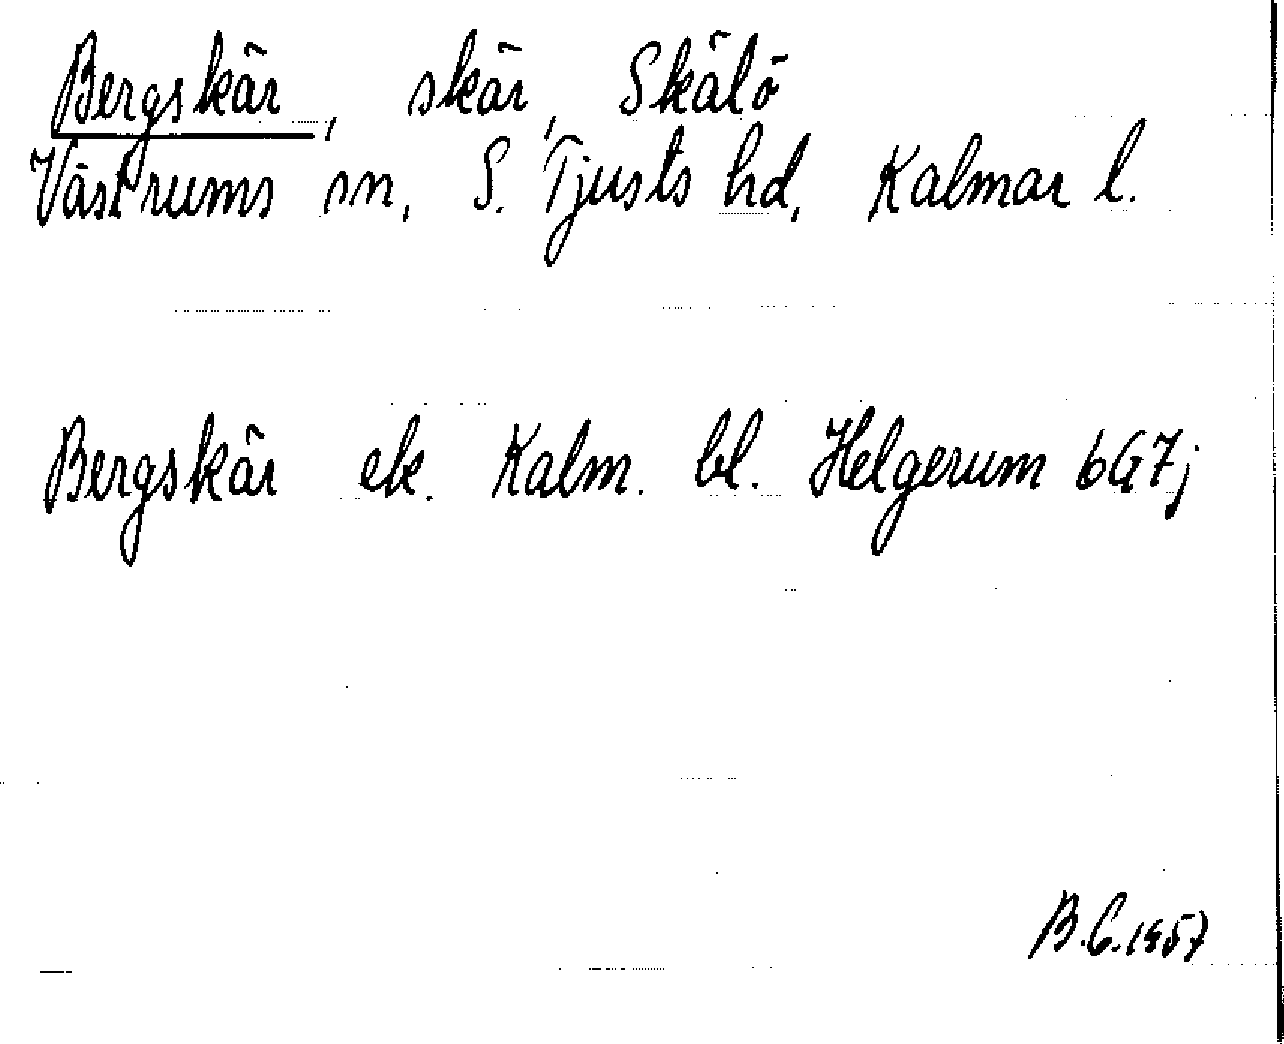 Bergskär, skär, Skälö
Västrums sn, S. Tjusts hd, Kalmar l.
Bergskär ek. Kalm. bl. Helgerum 6G7j
B.C. 1957